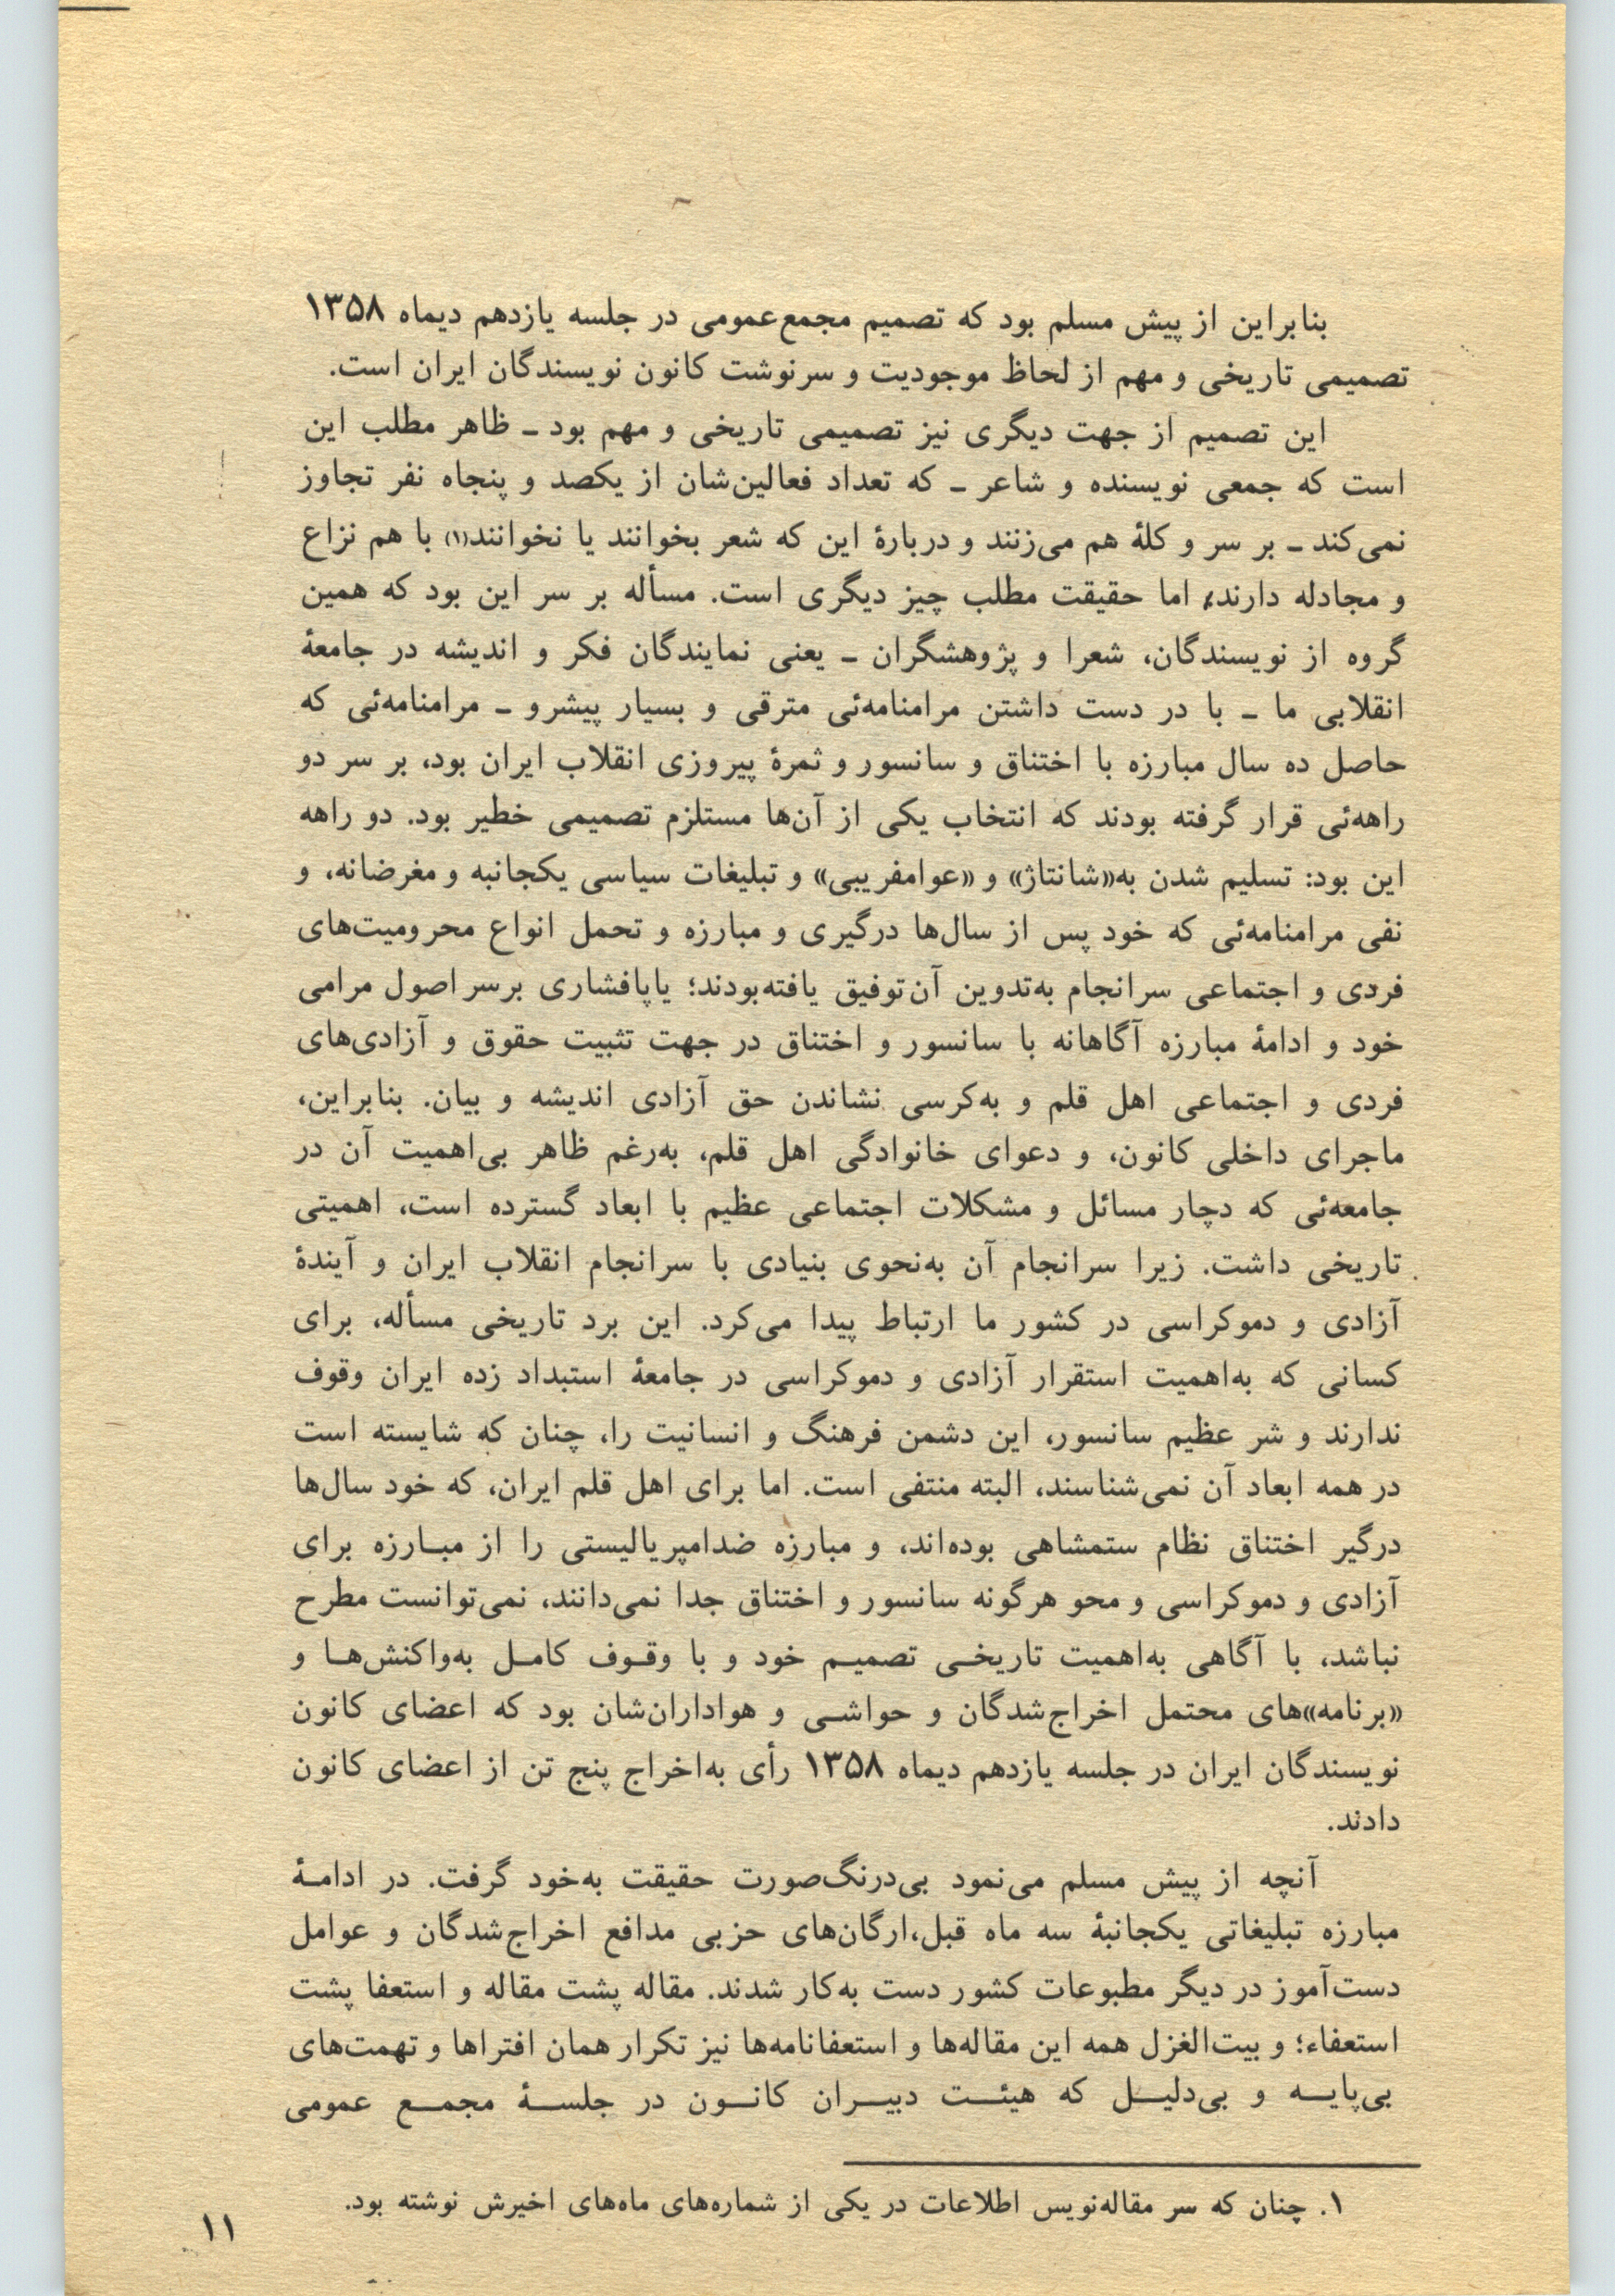 بنابراین از پیش مسلم بود که تصمیم مجمع‌عمومی در جلسه یازدهم دیماه ۱۳۵۸
تصمیمی تاریخی و مهم از لحاظ موجودیت و سرنوشت کانون نویسندگان ایران است.
این تصمیم از جهت دیگری نیز تصمیمی تاریخی و مهم بود ـ ظاهر مطلب این
است که جمعی نویسنده و شاعر ـ که تعداد فعالین‌شان از یکصد و پنجاه نفر تجاوز
نمی‌کند ـ بر سر و کلهٔ هم می‌زنند و دربارهٔ این که شعر بخوانند یا نخوانند(۱) با هم نزاع
و مجادله دارند؛ اما حقیقت مطلب چیز دیگری است. مسأله بر سر این بود که همین
گروه از نویسندگان، شعرا و پژوهشگران ـ یعنی نمایندگان فکر و اندیشه در جامعهٔ
انقلابی ما ـ با در دست داشتن مرامنامه‌ئی مترقی و بسیار پیشرو ـ مرامنامه‌ئی که
حاصل ده سال مبارزه با اختناق و سانسور و ثمرهٔ پیروزی انقلاب ایران بود، بر سر دو
راهه‌ئی قرار گرفته بودند که انتخاب یکی از آن‌ها مستلزم تصمیمی خطیر بود. دو راهه
این بود: تسلیم شدن به«شانتاژ» و «عوامفریبی» و تبلیغات سیاسی یکجانبه و مغرضانه، و
نفی مرامنامه‌ئی که خود پس از سال‌ها درگیری و مبارزه و تحمل انواع محرومیت‌های
فردی و اجتماعی سرانجام به‌تدوین آن‌توفیق یافته‌بودند؛ یاپافشاری برسر اصول مرامی
خود و ادامهٔ مبارزه آگاهانه با سانسور و اختناق در جهت تثبیت حقوق و آزادی‌های
فردی و اجتماعی اهل قلم و به‌کرسی نشاندن حق آزادی اندیشه و بیان. بنابراین،
ماجرای داخلی کانون، و دعوای خانوادگی اهل قلم، به‌رغم ظاهر بی‌اهمیت آن در
جامعه‌ئی که دچار مسائل و مشکلات اجتماعی عظیم با ابعاد گسترده است، اهمیتی
تاریخی داشت. زیرا سرانجام آن به‌نحوی بنیادی با سرانجام انقلاب ایران و آیندهٔ
آزادی و دموکراسی در کشور ما ارتباط پیدا می‌کرد. این برد تاریخی مسأله، برای
کسانی که به‌اهمیت استقرار آزادی و دموکراسی در جامعهٔ استبداد زده ایران وقوف
ندارند و شر عظیم سانسور، این دشمن فرهنگ و انسانیت را، چنان که شایسته است
در همه ابعاد آن نمی‌شناسند، البته منتفی است. اما برای اهل قلم ایران، که خود سال‌ها
درگیر اختناق نظام ستمشاهی بوده‌اند، و مبارزه ضدامپریالیستی را از مبـارزه برای
آزادی و دموکراسی و محو هرگونه سانسور و اختناق جدا نمی‌دانند، نمی‌توانست مطرح
نباشد، با آگاهی به‌اهمیت تاریخـی تصمیـم خود و با وقـوف کامـل به‌واکنش‌هـا و
«برنامه»های محتمل اخراج‌شدگان و حواشـی و هواداران‌شان بود که اعضای کانون
نویسندگان ایران در جلسه یازدهم دیماه ۱۳۵۸ رأی به‌اخراج پنج تن از اعضای کانون
دادند.
آنچه از پیش مسلم می‌نمود بی‌درنگ‌صورت حقیقت به‌خود گرفت. در ادامـهٔ
مبارزه تبلیغاتی یکجانبهٔ سه ماه قبل،ارگان‌های حزبی مدافع اخراج‌شدگان و عوامل
دست‌آموز در دیگر مطبوعات کشور دست به‌کار شدند. مقاله پشت مقاله و استعفا پشت
استعفاء؛ و بیت‌الغزل همه این مقاله‌ها و استعفانامه‌ها نیز تکرار همان افتراها و تهمت‌های
بی‌پایـه و بی‌دلیـل که هیئـت دبیـران کانـون در جلسـهٔ مجمـع عمومی
۱. چنان که سر مقاله‌نویس اطلاعات در یکی از شماره‌های ماه‌های اخیرش نوشته بود.
۱۱